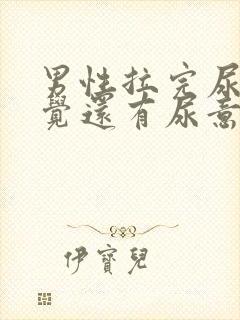 男性拉完尿
覺還有尿意
伊寶兒